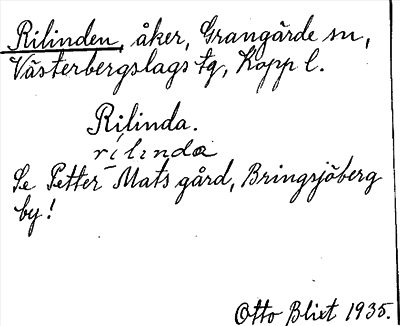 Rilinden, åker, Grangärde sn,
Västerbergslags tg, Kopp l.
Rilinda.
rílinda
Se Petter Mats gård, Bringsjöberg
by!
Otto Blixt 1935.